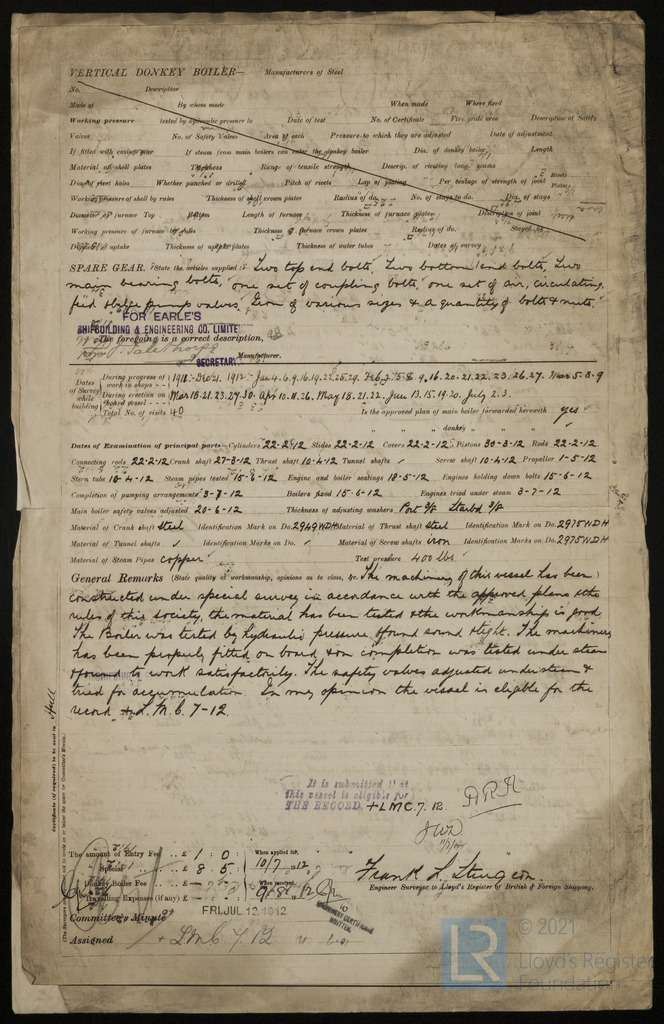 VERTICAL DONKEY BOILER— Manufacturers of Steel
No. Description
Made at By whom made When made Where fixed
Working pressure tested by hydraulic pressure to Date of test No. of Certificate Fire grate area Description of Safety
Valves No. of Safety Valves Area of each Pressure to which they are adjusted Date of adjustment
If fitted with easing gear If steam from main boilers can enter the donkey boiler Dia. of donkey boiler Length
Material of shell plates Thickness Range of tensile strength Descrip. of riveting long. seams
Dia. of rivet holes Whether punched or drilled Pitch of rivets Lap of plating Per centage of strength of joint Rivets Plates
Working pressure of shell by rules Thickness of shell crown plates Radius of do. No. of stays to do. Dia. of stays
Diameter of furnace Top Bottom Length of furnace Thickness of furnace plates Description of joint
Working pressure of furnace by rules Thickness of furnace crown plates Radius of do. Stayed by
Diameter of uptake Thickness of uptake plates Thickness of water tubes Dates of survey
SPARE GEAR. State the articles supplied:— Two top end bolts, Two bottom end bolts, Two
main bearing bolts, one set of coupling bolts, one set of air, circulating,
feed & bilge pump valves. Iron of various sizes & a quantity of bolts & nuts.
FOR EARLE'S
SHIPBUILDING & ENGINEERING CO. LIMITE
The foregoing is a correct description,
SECRETARY Manufacturer.
Dates of Survey while building
During progress of work in shops - - 1911:- Dec 21. 1912:- Jan 4.6.9.16.19.22.25.29. Feb 2.5.8.9.16.20.21.22.23.26.27. Mar 5.8.9
During erection on board vessel - - - Mar 18.21.23.27.30 Apr 10.11.26, May 18.21.22. Jun 13.15.19.20. July 2.3.
Total No. of visits 40 Is the approved plan of main boiler forwarded herewith yes
" " " donkey " "
Dates of Examination of principal parts—Cylinders 22-2-12 Slides 22-2-12 Covers 22-2-12 Pistons 30-3-12 Rods 22-2-12
Connecting rods 22-2-12 Crank shaft 27-3-12 Thrust shaft 10-4-12 Tunnel shafts Screw shaft 10-4-12 Propeller 1-5-12
Stern tube 10-4-12 Steam pipes tested 15-6-12 Engine and boiler seatings 18-5-12 Engines holding down bolts 15-6-12
Completion of pumping arrangements 3-7-12 Boilers fixed 15-6-12 Engines tried under steam 3-7-12
Main boiler safety valves adjusted 20-6-12 Thickness of adjusting washers Port Starbd
Material of Crank shaft Steel Identification Mark on Do. 2949WDH Material of Thrust shaft Steel Identification Mark on Do. 2975WDH
Material of Tunnel shafts Identification Marks on Do. Material of Screw shafts iron Identification Marks on Do. 2975WDH
Material of Steam Pipes copper Test pressure 400 lbs.
General Remarks (State quality of workmanship, opinions as to class, &c. The machinery of this vessel has been
constructed under special survey in accordance with the approved plans & the
rules of this society, the material has been tested & the workmanship is good
The Boiler was tested by hydraulic pressure & found sound & tight. The machinery
has been properly fitted on board & on completion was tested under steam
& found to work satisfactorily. The safety valves adjusted under steam &
tried for accumulation. In my opinion the vessel is eligible for the
record + L.M.C. 7-12.
Certificate (if required) to be sent to Hull
It is submitted that
this vessel is eligible for
THE RECORD. + LMC. 7. 12.
The amount of Entry Fee .. £ 1 : 0 : When applied for,
Special .. £ 8 5 : 10/7 1912
Donkey Boiler Fee .. £ When received,
Travelling Expenses (if any) £
Frank L. Sturgeon.
Engineer Surveyor to Lloyd's Register of British & Foreign Shipping.
FRI. JUL 12 1912
Committee's Minute
Assigned + LMC 7. 12
© 2021
Lloyd's Register
Foundation
LR